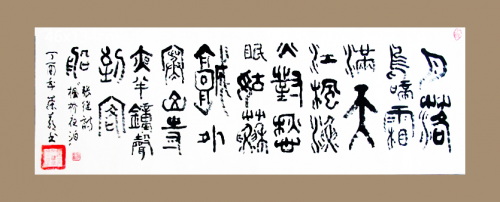 月落
烏啼霜
滿天
江楓漁
火對愁
眠姑蘇
城外
寒山寺
夜半鐘聲
到客
船
張继詩
楓桥夜泊
丁酉年